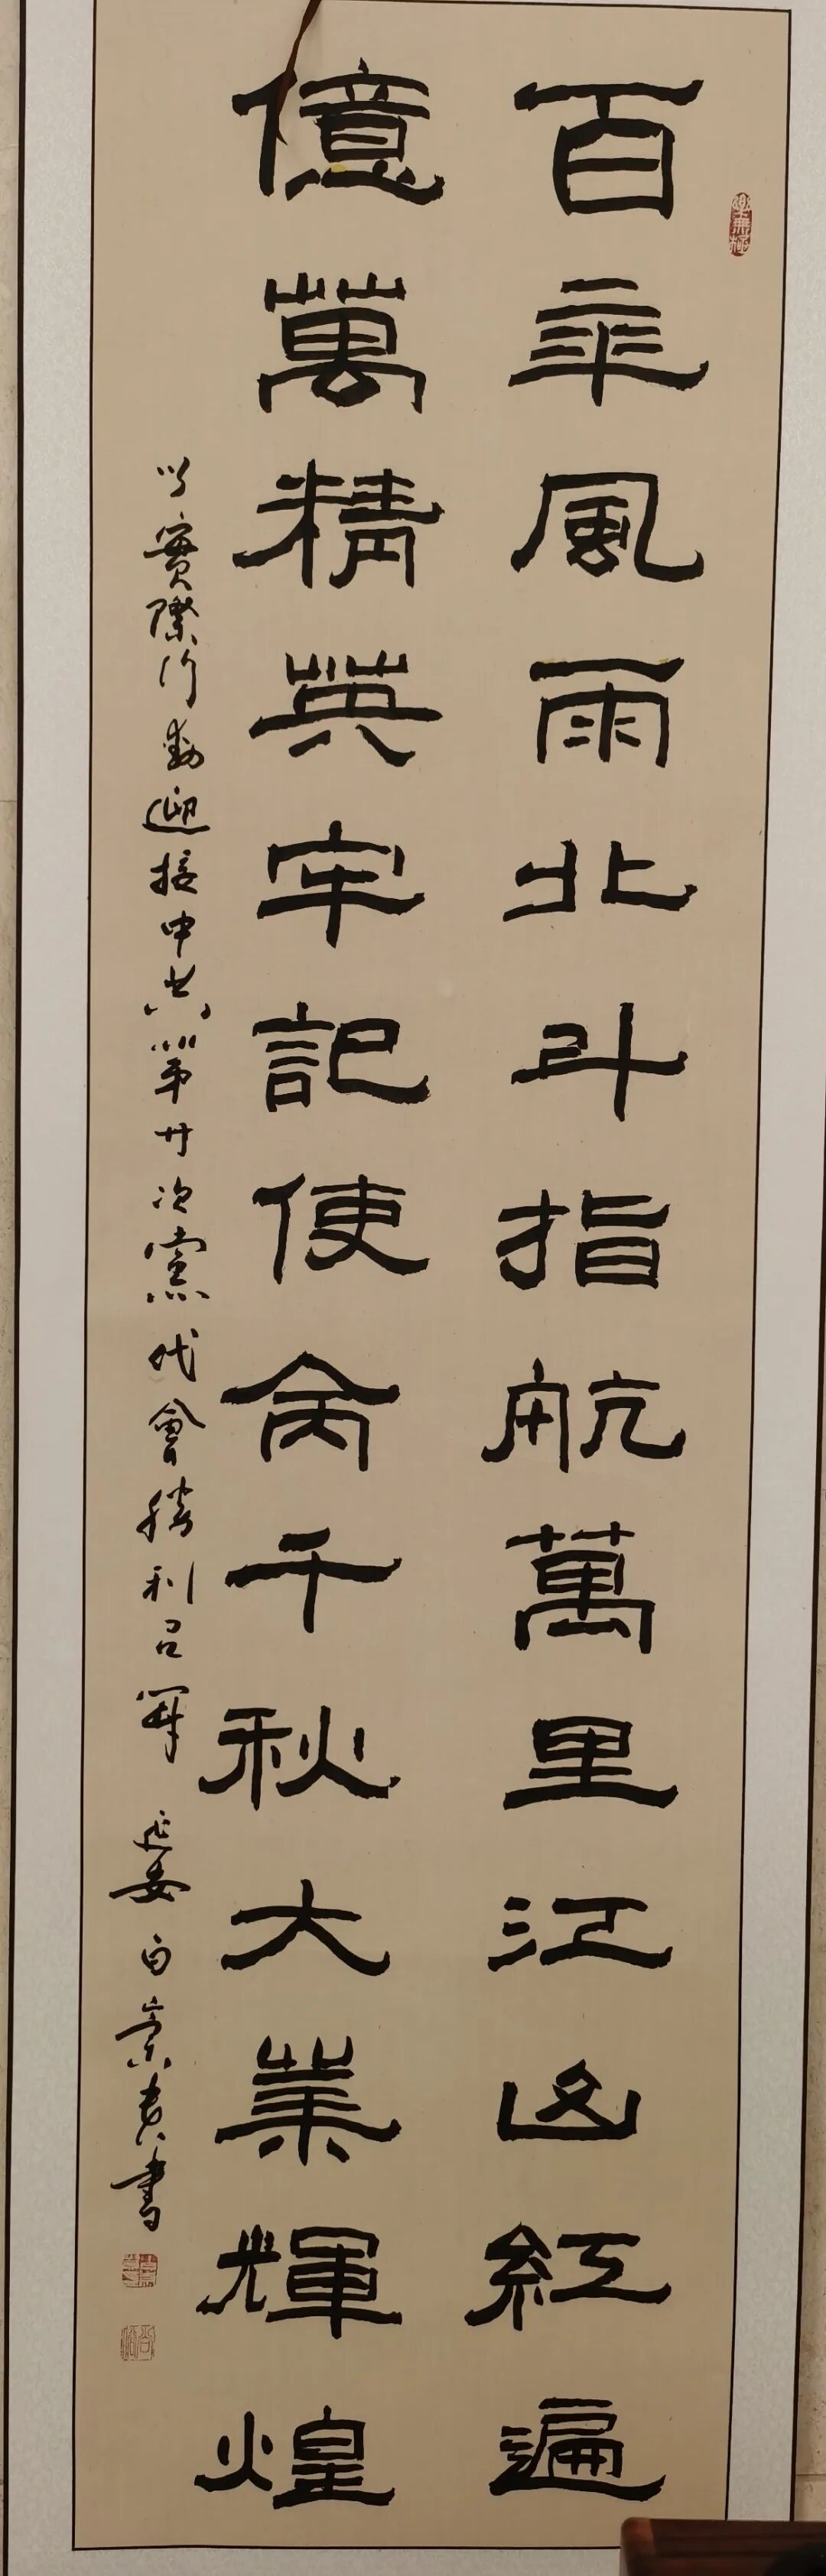 百年風雨北斗指航萬里江山紅遍
億萬精英牢記使命千秋大業輝煌
以實際行動迎接中共第廿次黨代會勝利召開 延安 白崇貴書